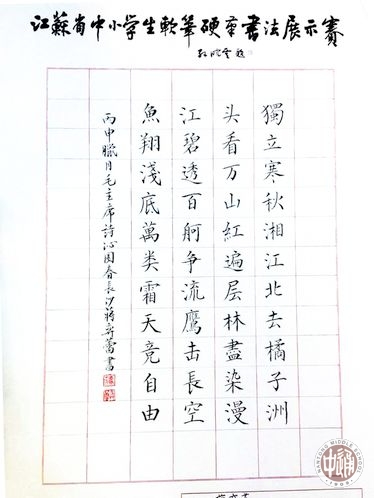 江蘇省中小学生軟筆硬筆書法展示賽
獨立寒秋湘江北去橘子洲
头看万山紅遍层林盡染漫
江碧透百舸争流鹰击長空
魚翔淺底萬类霜天竞自由
丙申臘月毛主席詩沁园春長沙蔣奔蕾書
NANTONG MIDDLE SCHOOL
中通
1909